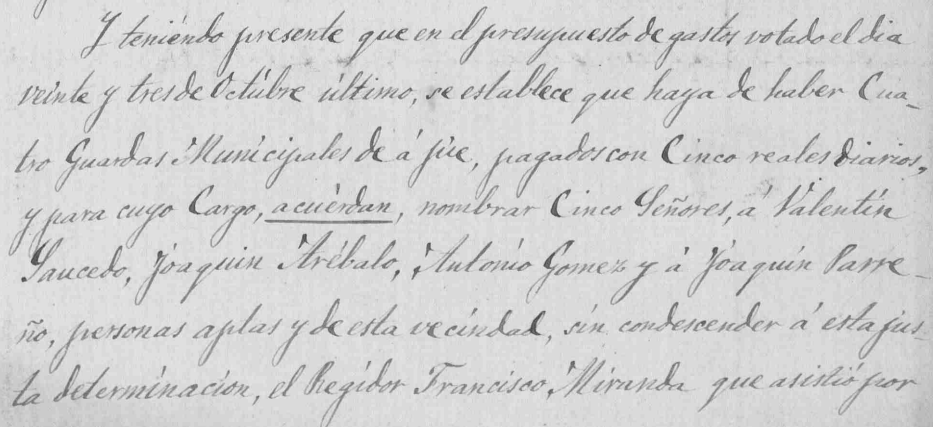 Y teniéndo presente que en el presupuesto de gastos votado el dia
veinte y tres de Octúbre último, se establece que haya de haber Cua-
tro Guardas Municipales de á pie, pagados con Cinco reales diarios,
y para cuyo Cargo, acuérdan, nombrar Cinco Señores, á Valentín
Saucedo, Joaquin Arébalo, António Gomez y á Joaquín Parre-
ño, personas aptas y de esta vecindad, sin condescender á esta jus-
ta determinacion, el Regidor Francisco Miranda que asistió por